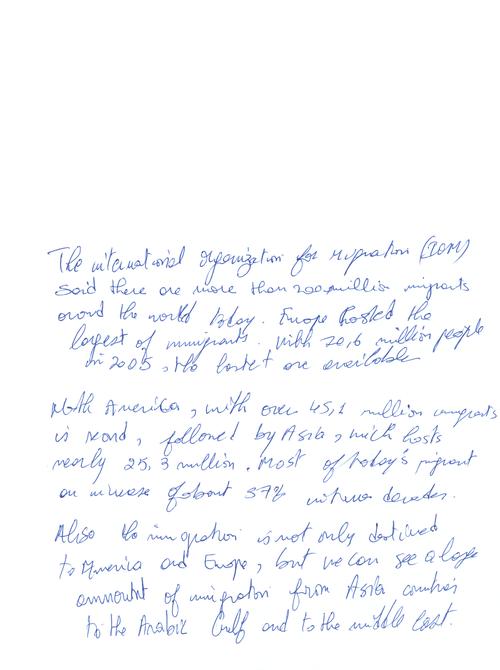 The international organization for migration (IOM)
said there are more than 200 million migrants
around the world today. Europe hosted the
largest of immigrants. With 70,6 million people
in 2005, the are available
North America, with over 45,1 million immigrants
is , followed by Asia, wich hosts
nearly 25,3 million. Most of today's migrant
an increase of about 37% decades.
Also the immigration is not only destined
to America and Europe, but we can see a large
ammount of migration from Asia countries
to the Arabic Gulf and to the middle East.